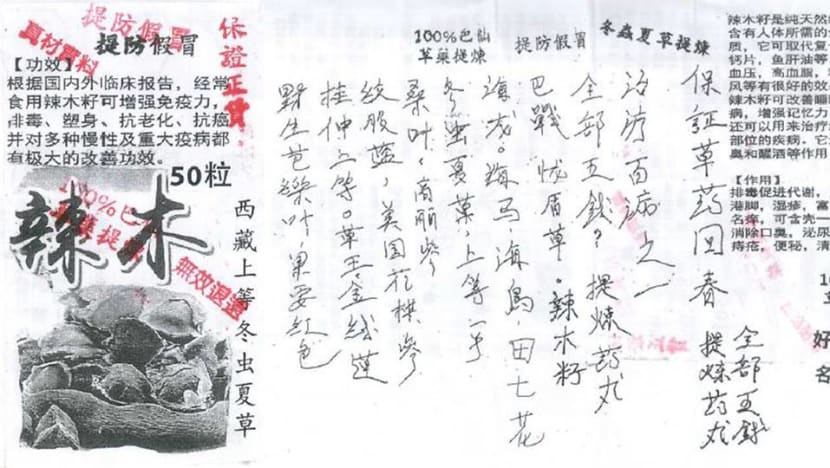 提防假冒
真材實料
提防假冒
保證正貨
【功效】
根据国内外临床报告，经常
食用辣木籽可增强免疫力，
排毒、塑身、抗老化、抗癌
并对多种慢性及重大疫病都
有极大的改善功效。
50粒
辣木
100%巴仙
草藥提煉
無效退還
西藏上等冬虫夏草
100%巴仙
草藥提煉
提防假冒
冬蟲夏草提煉
保证草药回春
全部五錢
提煉药丸
治疗百病之一
全部五錢? 提煉药丸
草.辣木籽
海马.海鸟.田七花
冬虫夏草,上等一号
桑叶.高丽参
股蓝.美国花棋参
桂仲上等。草王金线莲
野生芭樂叶.要红色
辣木籽是纯天然
含有人体所需的
质，它可取代复
钙片，鱼肝油等
血压，高血脂，
风等有很好的效
辣木籽可改善睡
病，增强记忆力
还可以用来治疗
部位的疾病。它
臭和醒酒等作用
【作用】
排毒促进代谢，
港脚，湿疹，富
名痒，可含壳一
消除口臭，泌尿
痔疮，便秘，清
好
名